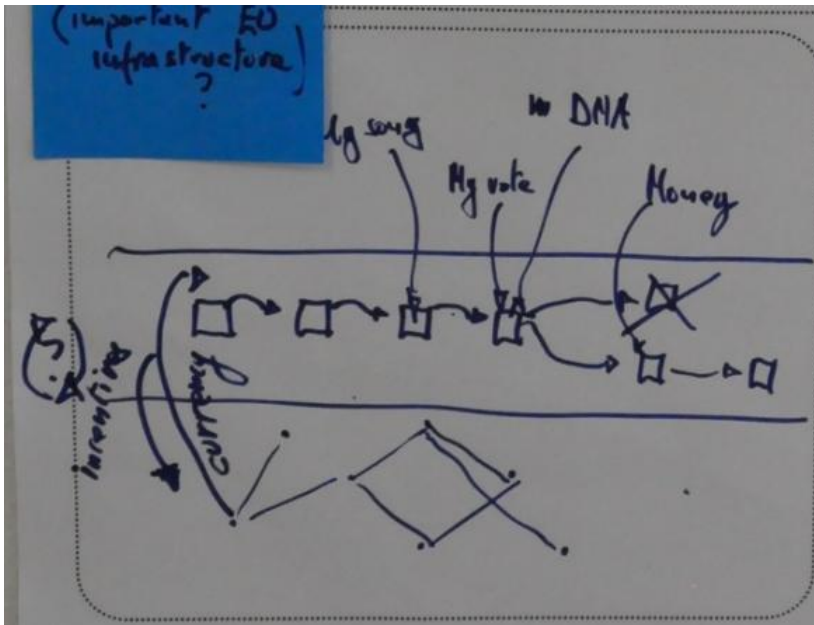 (important EU
infrastructure)
?
My song
My DNA
My vote
Money
currency